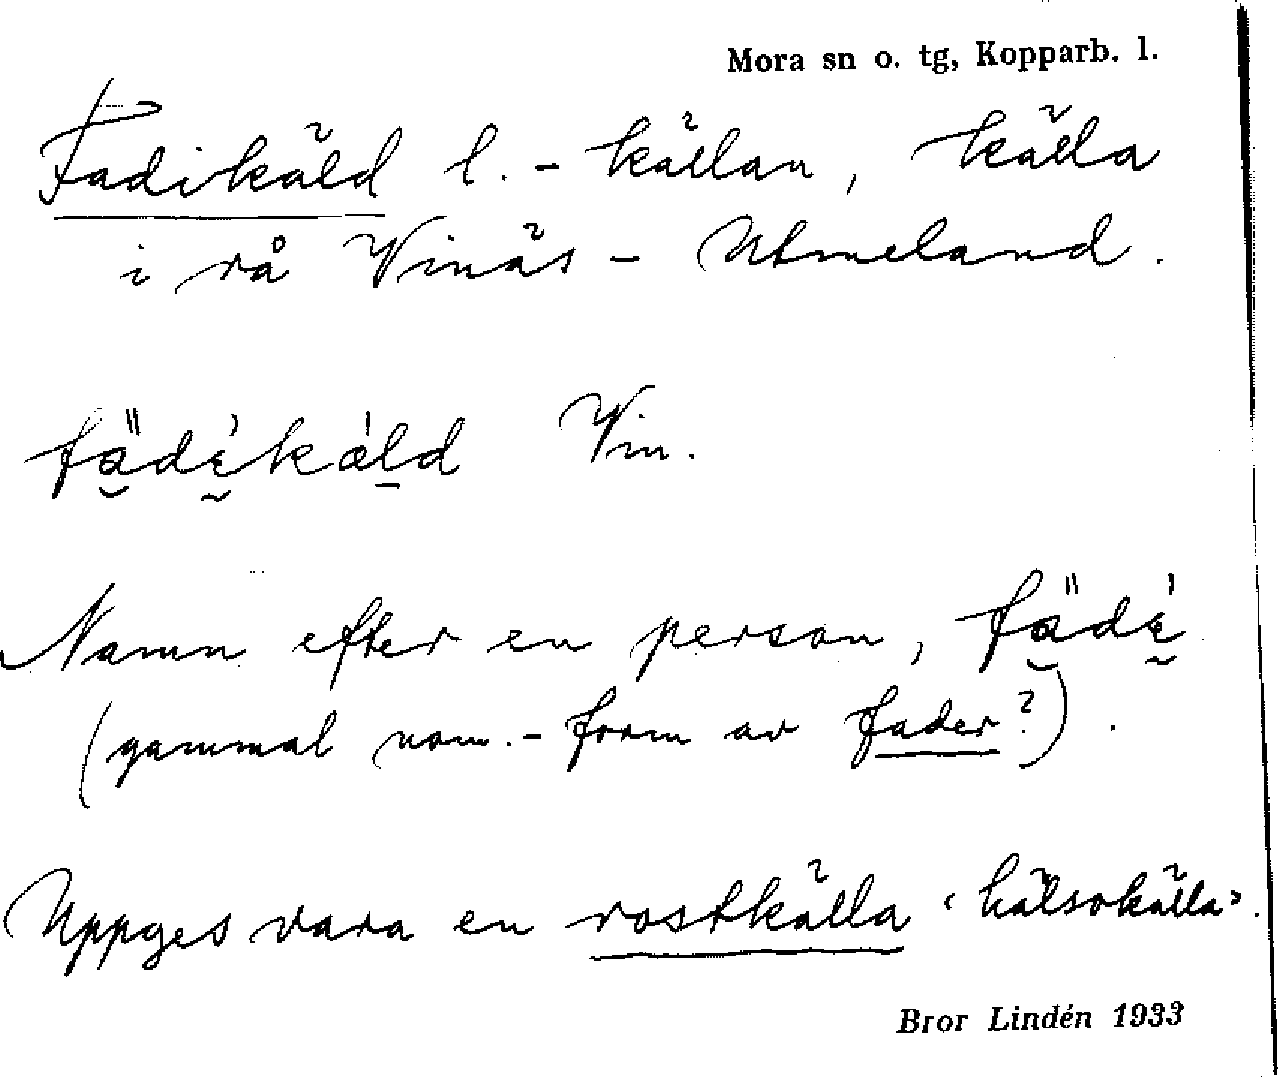 Mora sn o. tg, Kopparb. l.
Fadikäld l. - källan, källa
i rå Vinäs - Utmeland.
Vin.
Namn efter en person,
(gammal nom.-form av fader?).
Uppges vara en rostkälla ‹hälsokälla›.
Bror Lindén 1933